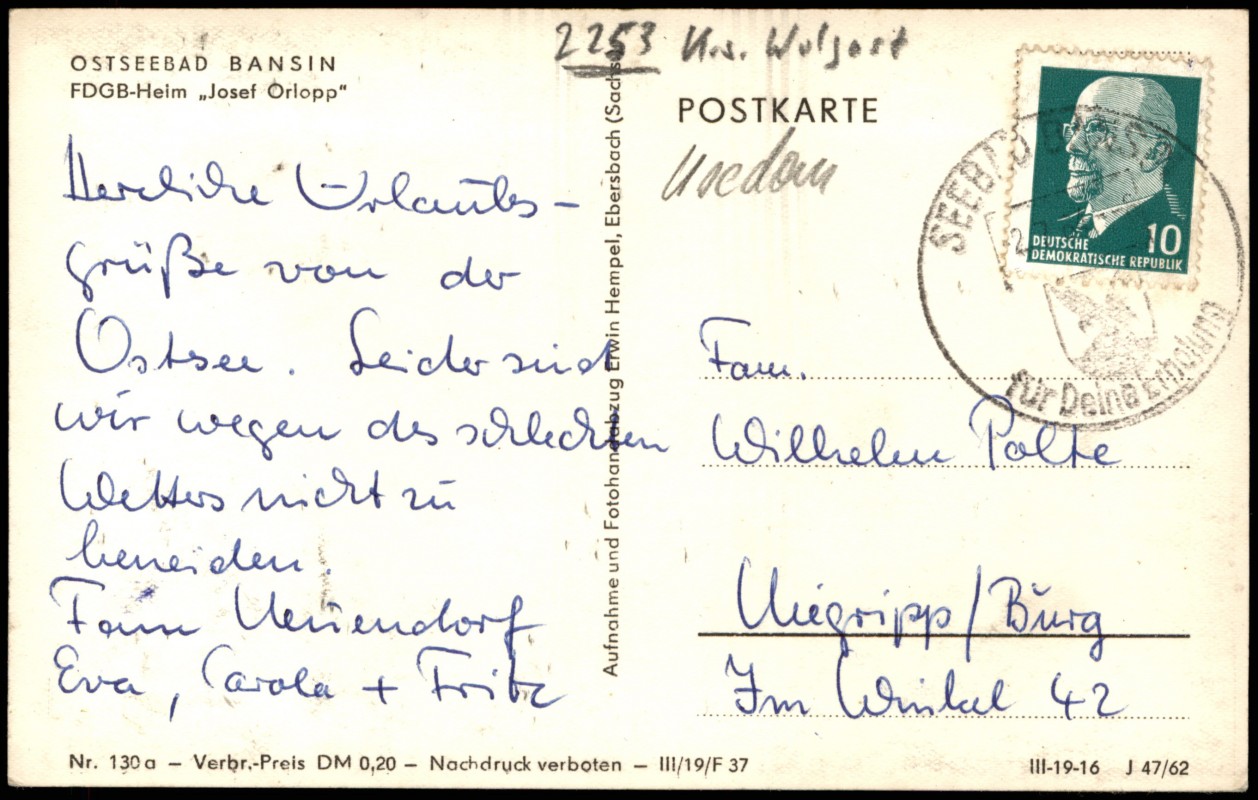 2253 Krs. Wolgast
OSTSEEBAD BANSIN
FDGB-Heim „Josef Orlopp"
POSTKARTE
Usedom
Herzliche Urlaubs-
grüße von der
Ostsee. Leider sind
wir wegen des schlechten
Wetters nicht zu
beneiden.
Fam Neuendorf
Eva, Carola + Fritz
Aufnahme und Fotohandabzug Erwin Hempel, Ebersbach (Sachs.
DEUTSCHE 10
DEMOKRATISCHE REPUBLIK
SEEBAD BANSIN
für Deine Erholung
Fam.
Wilhelm Polte
Niegripp/Burg
Im Winkel 42
Nr. 130a – Verbr.-Preis DM 0,20 – Nachdruck verboten – III/19/F 37
III-19-16 J 47/62